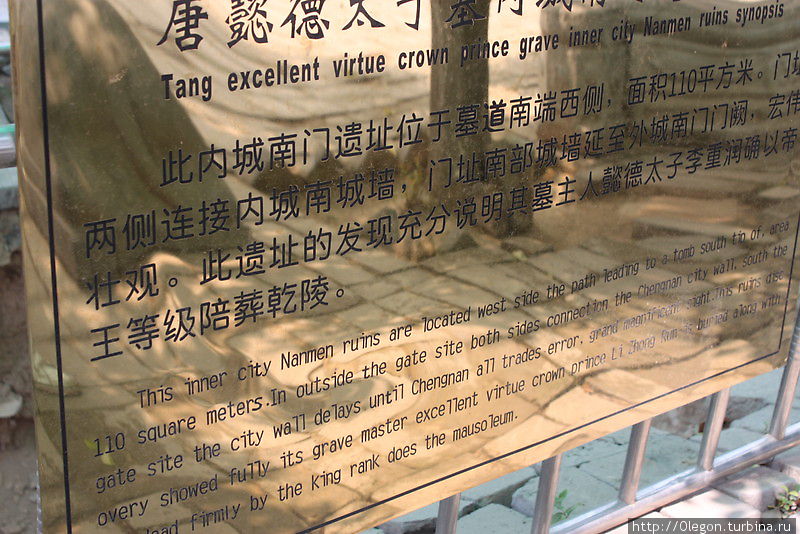 唐懿德太子墓内城南门
Tang excellent virtue crown prince grave inner city Nanmen ruins synopsis
此内城南门遗址位于墓道南端西侧，面积110平方米。门址
两侧连接内城南城墙，门址南部城墙延至外城南门门阙，宏伟
壮观。此遗址的发现充分说明其墓主人懿德太子李重润确以帝
王等级陪葬乾陵。
This inner city Nanmen ruins are located west side the path leading to a tomb south tip of, area
110 square meters.In outside the gate site both sides connection the Chengnan city wall, south the
gate site the city wall delays until Chengnan all trades error, grand magnificent sight.This ruins disc
overy showed fully its grave master excellent virtue crown prince Li Zhong Run is buried along with
dead firmly by the King rank does the mausoleum.
http://Olegon.turbina.ru